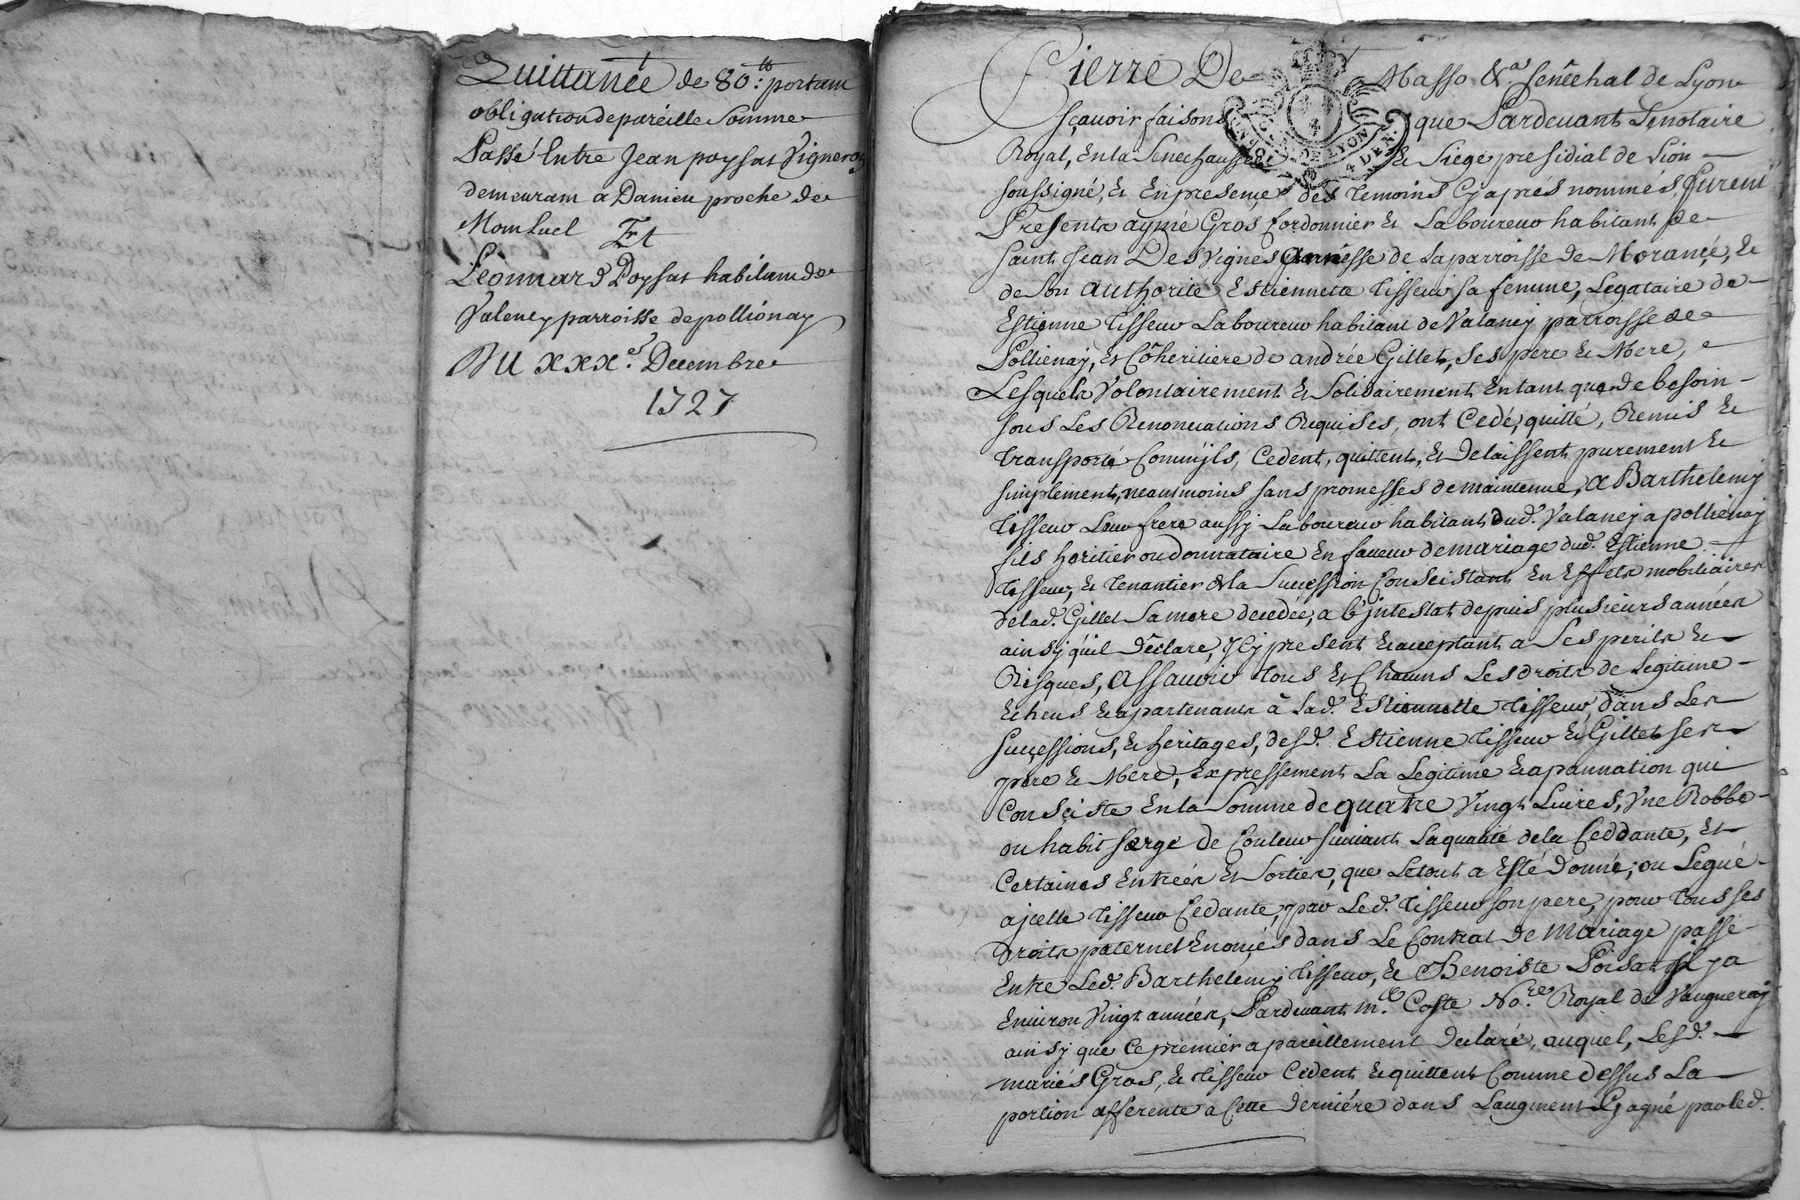 Quittance de 80.lt portant
obligation de pareille Somme
Passé Entre Jean poysat Vigneron
demeurant a Danieu proche de
Monluel Et
Leonnard Poysat habitant de
Valeney parroisse de pollionay
Du xxx.e Decembre
1727
Pierre De Masso &.a senêchal de Lyon
sçavoir faisons que Pardevant Le notaire
Royal, En la Senechaussée & Siege presidial de Lion
soussigné, & En presence des temoins Cy aprés nommés, furent
Presents aymé Gros Cordonnier & Laboureur habitant de
Saint Jean Des Vignes annèsse de La parroisse de Morancé, &
de Son authorité Estiennette tisseur sa femme, Legataire de
Estienne tisseur Laboureur habitant de Valaney parroisse de
Pollienay, & Côheritiere de andrée Gillet, Ses pere & Mere,
Lesquels Volontairement & Solidairement En tant que de besoin
sous Les Renonciations Requises, ont Cedé, quitté, Remis &
transporté Comm'jls, Cedent, quittent, & Delaissent purement &
simplement, neantmoins sans promesses de maintenue, a Barthelemy
tisseur Leur frere aussy Laboureur habitant dud. Valaney a pollienay
fils heritier ou donnataire En faveur de mariage dud. Estienne
tisseur, & tenantier de la Succession Consistant En Effets mobiliaires
de lad. Gillet Sa mere decedée, a b'jntestat depuis plusieurs années
ainsy qu'il déclare, Jcy present & acceptant a Ses perils &
Risques, assavoir tous & Chacuns Les droits de Legitime
Echeus & apartenants à Lad. Estiennette tisseur, dans Les
Successions, & heritages, desd. Estienne tisseur & Gillet ses
pere & Mere, Expressement La Legitime & apannation qui
Consiste En la Somme de quatre Vingt Livres, Vne Robbe
ou habit sarge de Couleur suivant La qualité de la Ceddante, Et
Certaines Entrées & Sorties, que Le tout a Esté donné, ou Legué
a jcelle tisseur Cedante, par Led. tisseur son pere, pour tous ses
Droits paternel Enoncés dans Le Contrat de Mariage passé
Entre Led. Barthelemy tisseur, & Benoiste Poisat jl ya
Environ Vingt années, Pardevant m.e Coste No.re Royal de Vaugneray
ainsy que Ce premier a pareillement declaré, auquel, Lesd.
mariés Gros, & tisseur Cedent & quittent Comme dessus La
portion afferente a Cette derniére dans L'augment Gagné par led.